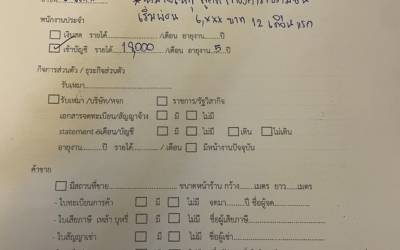 เริ่มผ่อน 6,xxx บาท 12 เดือนแรก
พนักงานประจำ
เงินสด รายได้............/เดือน อายุงาน......ปี
เข้าบัญชี รายได้ 19,000 /เดือน อายุงาน 5 ปี
กิจการส่วนตัว / ธุระกิจส่วนตัว
รับเหมา
รับเหมา /บริษัท/หจก ราชการ/รัฐวิสากิจ
เอกสารจดทะเบียน/สัญญาจ้าง มี ไม่มี
statement 6เดือน/บัญชี มี ไม่มี เดิน ไม่เดิน
อายุงาน............ปี รายได้............/ เดือน มีหน้างานปัจจุบัน
ค้าขาย
มีสถานที่ขาย............ขนาดหน้าร้าน กว้าง......เมตร ยาว......เมตร
- ใบทะเบียนการค้า มี ไม่มี จดมา......ปี ชื่อผู้จด
- ใบเสียภาษี เหล้า บุหรี่ มี ไม่มี ชื่อผู้เสียภาษี
- ใบสัญญาเช่า มี ไม่มี ชื่อผู้เช่า